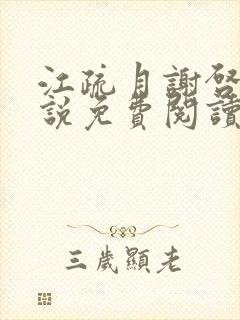 江疏月謝啓
說免費閱讀
三歲顯老